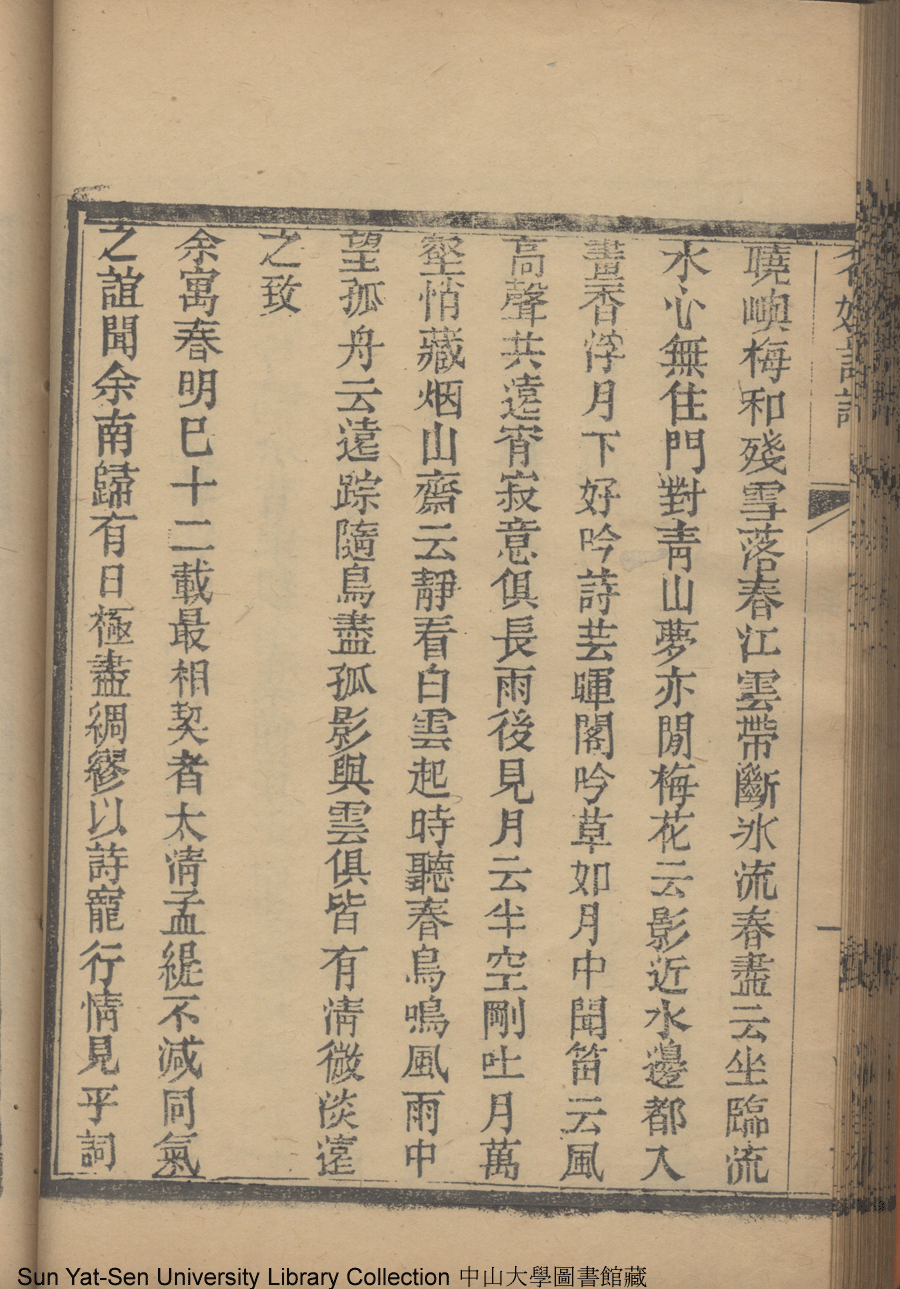 曉嶼梅和殘雪落春江雲帶斷氷流春盡云坐臨流
水心無住門對青山夢亦閒梅花云影近水邊都入
畫香浮月下好吟詩芸暉閣吟草如月中聞笛云風
高聲共遠宵寂意俱長雨後見月云半空剛吐月萬
壑悄藏烟山齋云靜看白雲起時聽春鳥鳴風雨中
望孤舟云遠踪隨鳥盡孤影與雲俱皆有清微淡遠
之致
余寓春明巳十二載最相契者太清孟緹不减同氣
之誼聞余南歸有日極盡綢繆以詩寵行情見乎詞
Sun Yat-Sen University Library Collection 中山大學圖書館藏